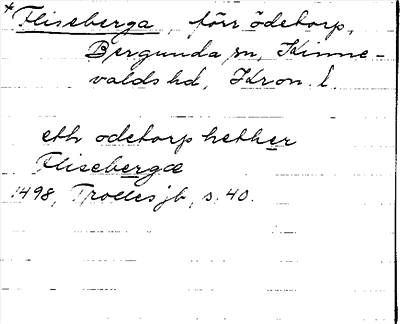 *Fliseberga, förr ödetorp,
Bergunda sn, Kinne-
valds hd, Kron. l.
eth ödetorp hether
Flisebergæ
1498, Trolles jb, s. 40.